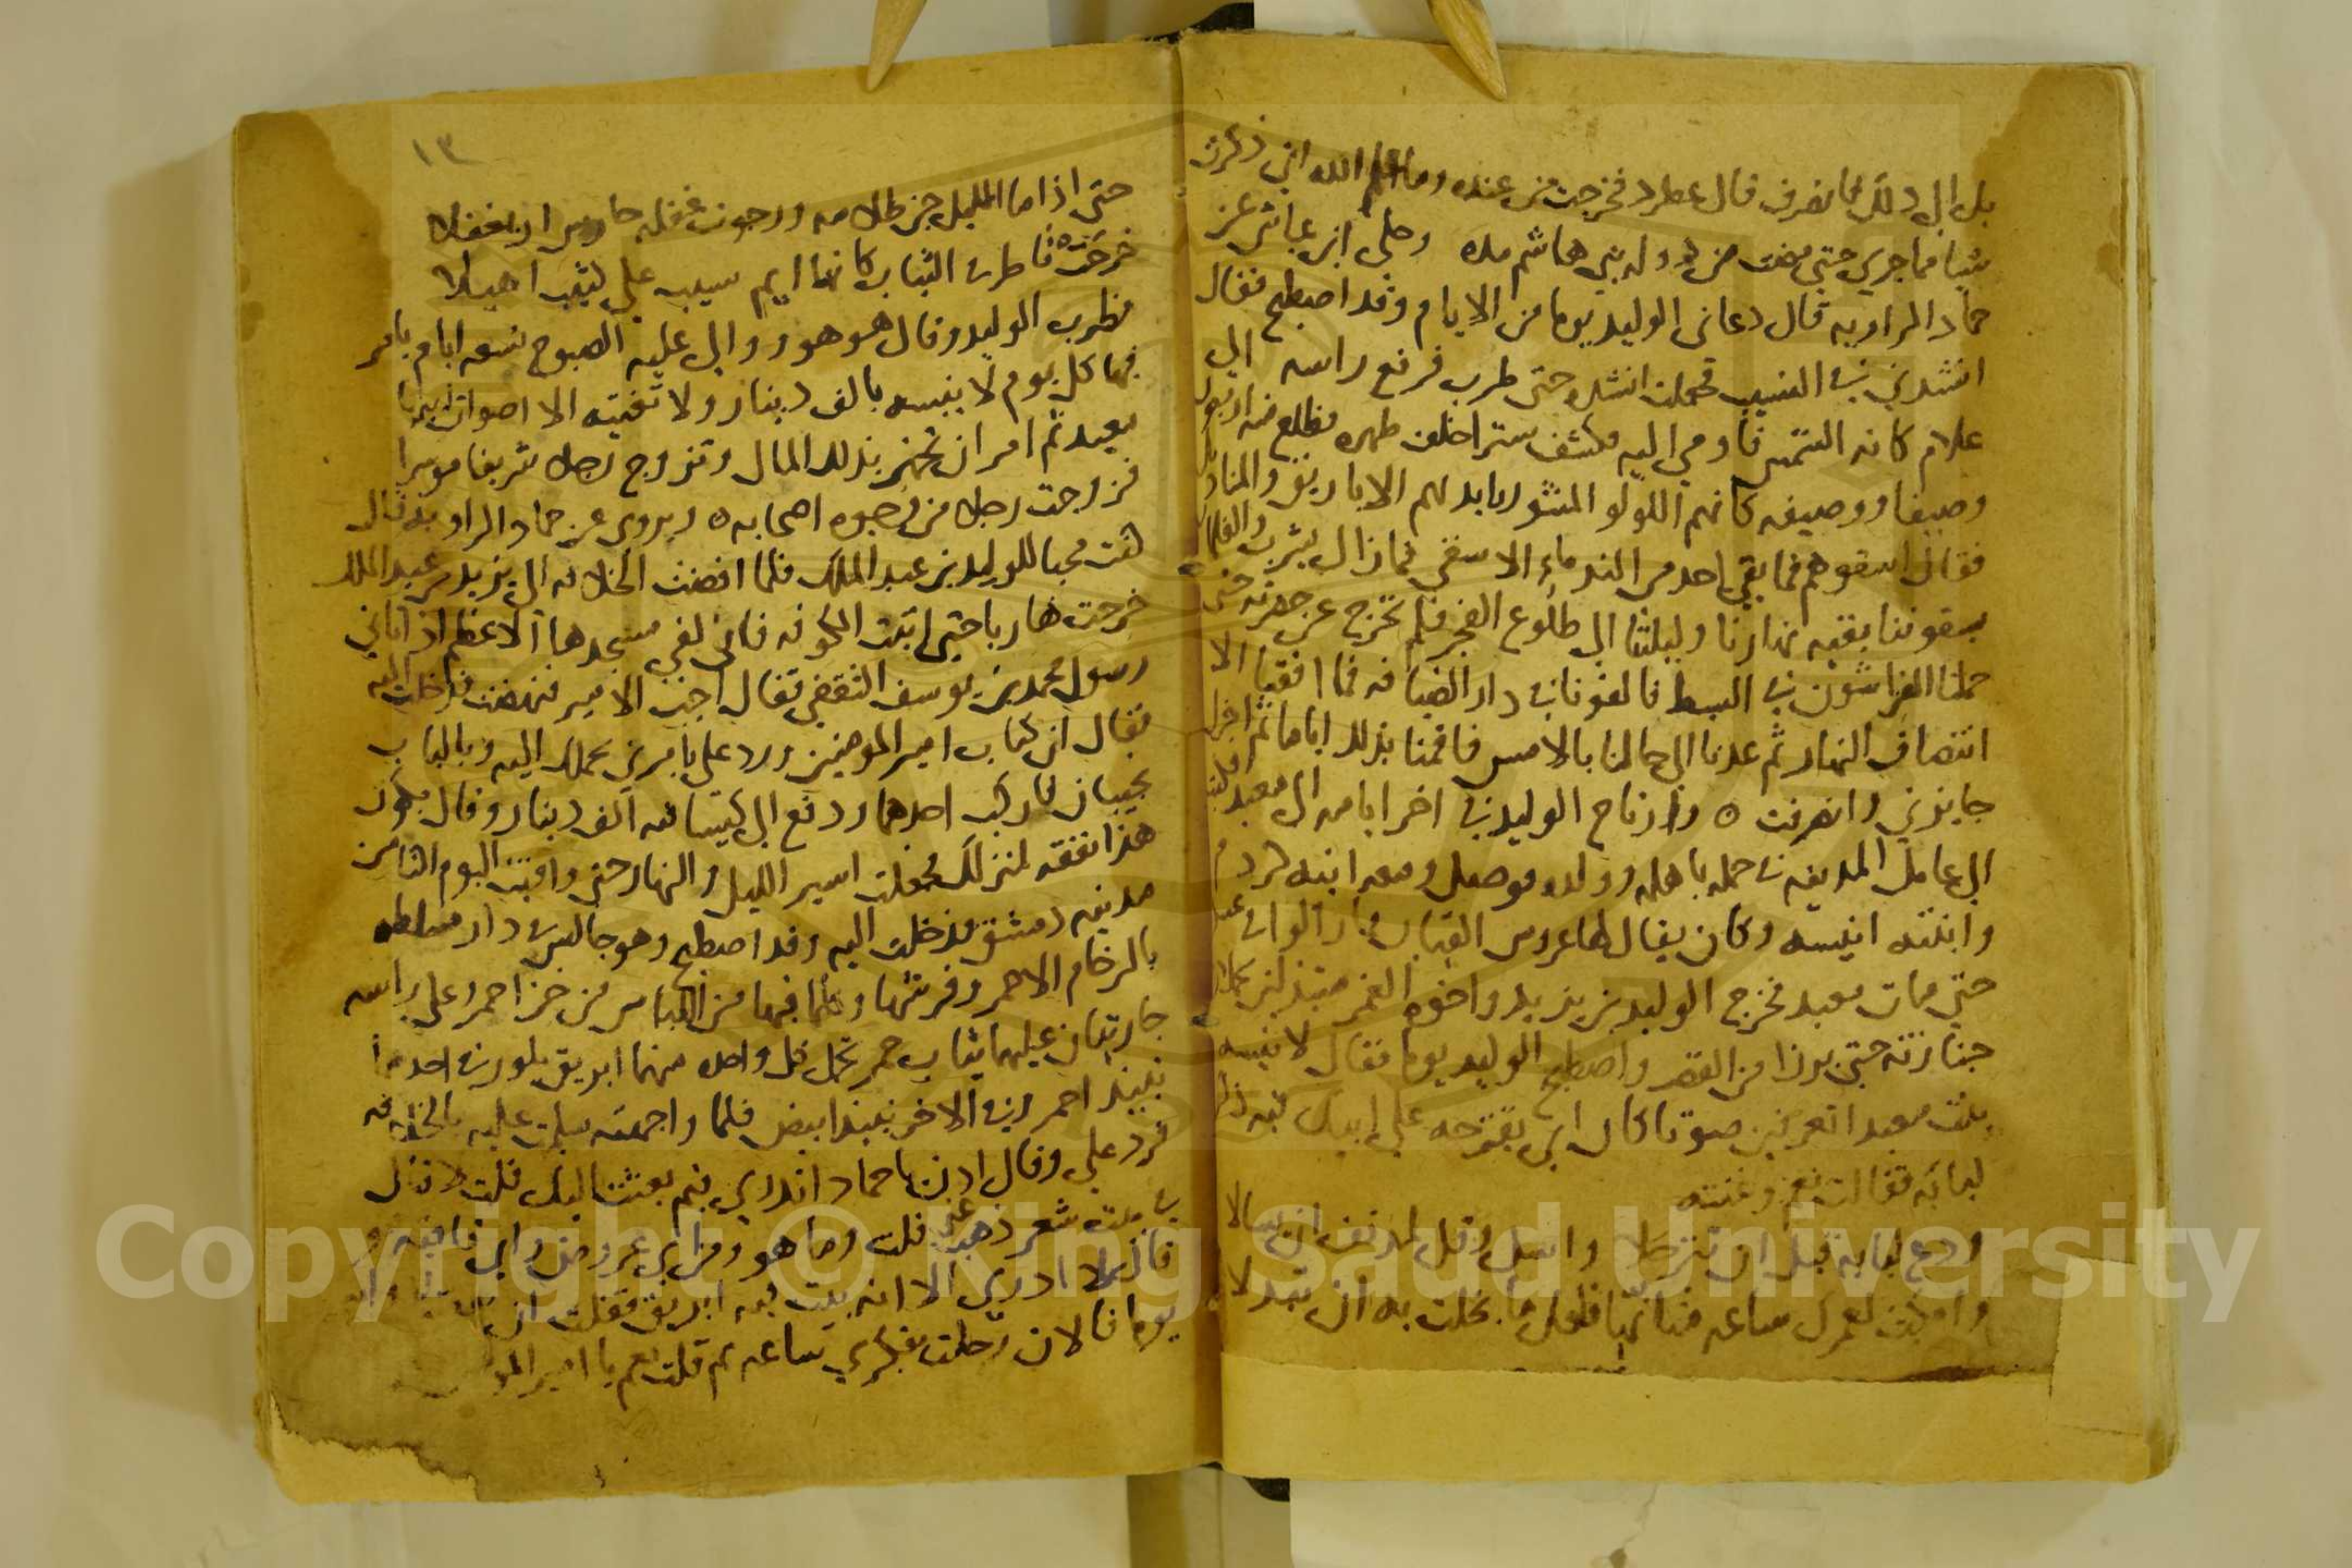 بل الى ذلك فانصرف قال عطرد فخرجت من عنده وما علم الله اني ذكرت
شيا مما جرى حتى مضت من دوله بني هاشم مده وحكى ابن عياش عن
حماد الراويه قال دعانى الوليد يوما من الايام وقد اصطبح فقال
انشدني في النسيب فجعلت انشده حتى طرب فرفع راسه الى
غلام كانه الشمس فاومى اليه فكشف سترا خلف ظهره فطلع منه اربعون
وصيفا ووصيفه كانهم اللولو المنثور بايديهم الاباريق والمناديل
فقال اسقوهم فما بقي احد من الندماء الا سقي فما زال يشرب
يسقوننا بقيه نهارنا وليلتنا الى طلوع الفجر فلم نخرج عن حضرته حتى
حملنا الفراشون في البسط فالقونا في دار الضيافه فما افقنا الا
انتصاف النهار ثم عدنا الى حالنا بالامس فاقمنا بذلك اياما ثم
جايزتي وانصرفت ه وارتاح الوليد في اخر ايامه الى معبد فكتب
الى عامل المدينه في حمله باهله وولده فوصل ومعه ابنه كردم
وابنته انيسه وكان يقال لها عروس القيان
حتى مات معبد فخرج الوليد بن يزيد واخوه الغمر
جنازته حتى برزا من القصر واصطبح الوليد يوما فقال لانيسه
بنت معبد اتعرفين صوتا كان ابي يقترحه على ابيك فيه ذكر
لبابه فقالت نعم وغنته
ودع لبابه قبل ان تترحلا واسل وقل لمدنف ان يسالا
وامكث لعمرك ساعه فتانها فلعل ما بخلت به ان يبذلا
١٣
حتى اذا ما الليل جن ظلامه ورجوت غفله حارس ان يغفلا
خرجت تاطر في الثياب كانها ايم يسيب على كثيب اهيلا
فطرب الوليد وقال هو هو ووالى عليه الصبوح تسعه ايام يامر
فيها كل يوم لانيسه بالف دينار ولا تغنيه الا اصوات ابيها
معبد ثم امر ان تجهز بذلك المال وتزوج رجلا شريفا موسرا
فزوجت رجلا من وجوه اصحابه ه ويروى عن حماد الراويه قال
كنت محبا للوليد بن عبد الملك فلما افضت الخلافه الى يزيد بن عبد الملك
خرجت هاربا حتى اتيت الكوفه فاني لفي مسجدها الاعظم اذ اتاني
رسول محمد بن يوسف الثقفي فقال اجب الامير فنهضت فدخلت اليه
فقال ان كتاب امير المومنين ورد علي يامرني بحملك اليه وبالباب
نجيبان فاركب احدهما ودفع الي كيسا فيه الف دينار وقال يكون
هذا نفقه لمنزلك فجعلت اسير الليل والنهار حتى وافيت اليوم الثامن
مدينه دمشق فدخلت اليه وقد اصطبح وهو جالس في دار مبلطه
بالرخام الاحمر وفرشها وكلما فيها من اللباس من خز احمر وعلى راسه
جاريتان عليهما ثياب حمر تحمل كل واحده منهما ابريق بلور في احدهما
نبيذ احمر وفي الاخر نبيذ ابيض فلما واجهته سلمت عليه بالخلافه
فرد علي وقال ادن يا حماد اتدري فيم بعثت اليك قلت لا قال
في بيت شعر ذهب عني قلت وما هو ومن اي عروض واي قافيه هو
قال لا ادري الا انه بيت فيه ابريق فقلت
يوما فالان رحلت بفكري ساعه ثم قلت نعم يا امير المو